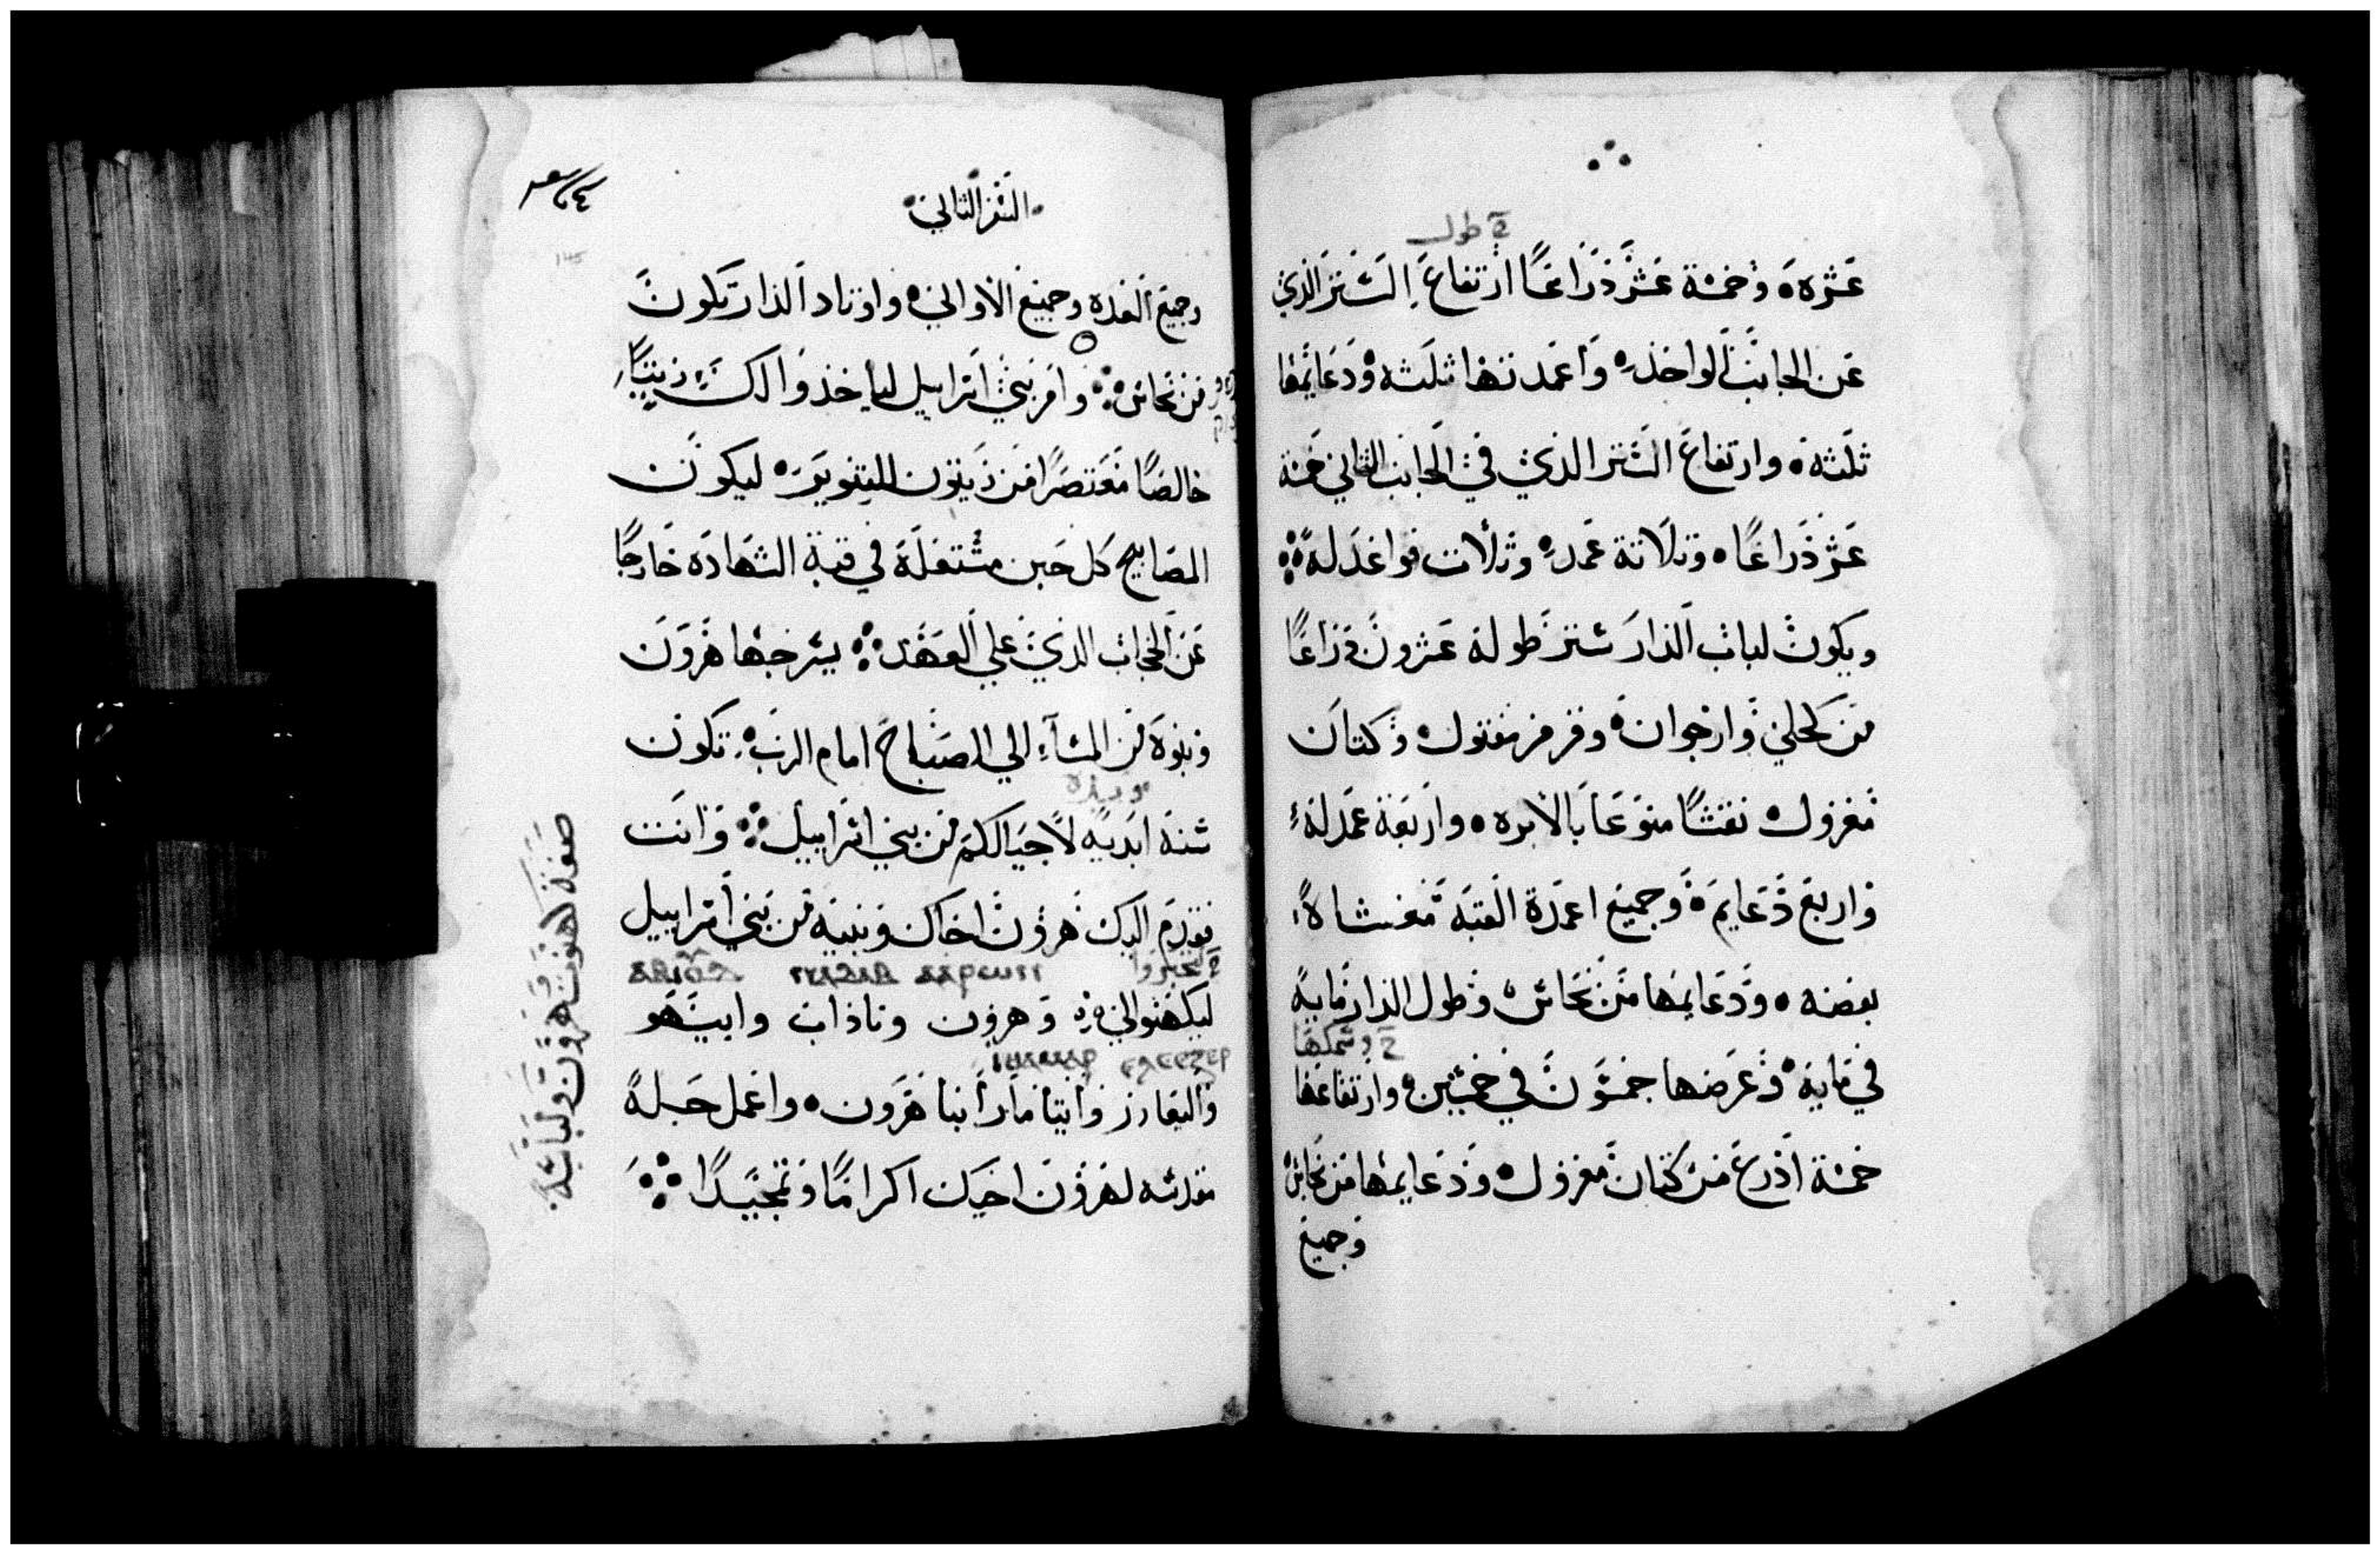 خ طول
عشره وخمسة عشر ذراعًا ارتفاع الستر الذي
عن الجانب الواحد وأعمدتها ثلثه ودعايمها
ثلثه وارتفاع الستر الذي في الجانب الثاني خمسة
عشر ذراعًا وثلاثة عمد وثلات قواعد له
ويكون لباب الدار ستر طوله عشرون ذراعًا
من كحلي وارجوان وقرمز مفتول وكتان
مغزول نقشًا منوعًا بالابره واربعة عمد له
واربع دعايم وجميع اعمدة القبه مغشاه
بفضه ودعايمها من نحاس وطول الدار مايه
خ وسمكها
في مايه وعرضها خمسون في خمسين وارتفاعها
خمسة اذرع من كتان مغزول ودعايمها من نحاس
وجميع
السفر الثاني
وجميع العده وجميع الاواني واوتاد الدار تكون
من نحاس وامر بني اسراييل ليأخذوا لك زيتًا
خالصًا معتصرًا من زيتون للتنوير ليكون
المصابيح كل حين مشتعلة في قبة الشهاده خارجًا
عن الحجاب الذي على العهد يسرجها هرون
وبنوه من المسآء الي الصباح امام الرب تكون
سنه ابديه لاجيالكم من بني اسراييل وانت
فقدم اليك هرون اخاك وبنيه من بني اسراييل
ليكهنوا لي هرون وناداب وابيهو
والعازر وايتامار ابنا هرون واعمل حله
مقدسه لهرون اخيك اكرامًا وتمجيدًا
صفة كهنوت هرون ولباسه